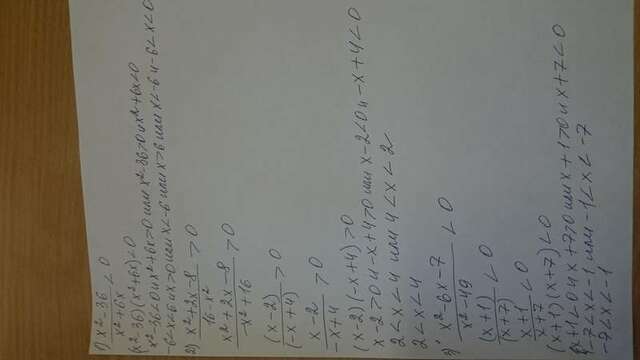 1) x²-36 / x²+6x < 0
(x²-36)(x²+6x)<0
x²-36<0 и x²+6x>0 или x²-36>0 и x²+6x<0
-6<x<6 и x>0 или x<-6 или x>6 или x<-6 и -6<x<0
2) x²+2x-8 / 16-x² > 0
x²+2x-8 / -x²+16 > 0
(x-2) / (-x+4) > 0
x-2 / -x+4 > 0
(x-2)(-x+4)>0
x-2>0 и -x+4>0 или x-2<0 и -x+4<0
2<x<4 или 4<x<2
2<x<4
3) x²-6x-7 / x²-49 < 0
(x+1) / (x+7) < 0
x+1 / x+7 < 0
(x+1)(x+7)<0
x+1<0 и x+7>0 или x+1>0 и x+7<0
-7<x<-1 или -1<x<-7
-7<x<-1